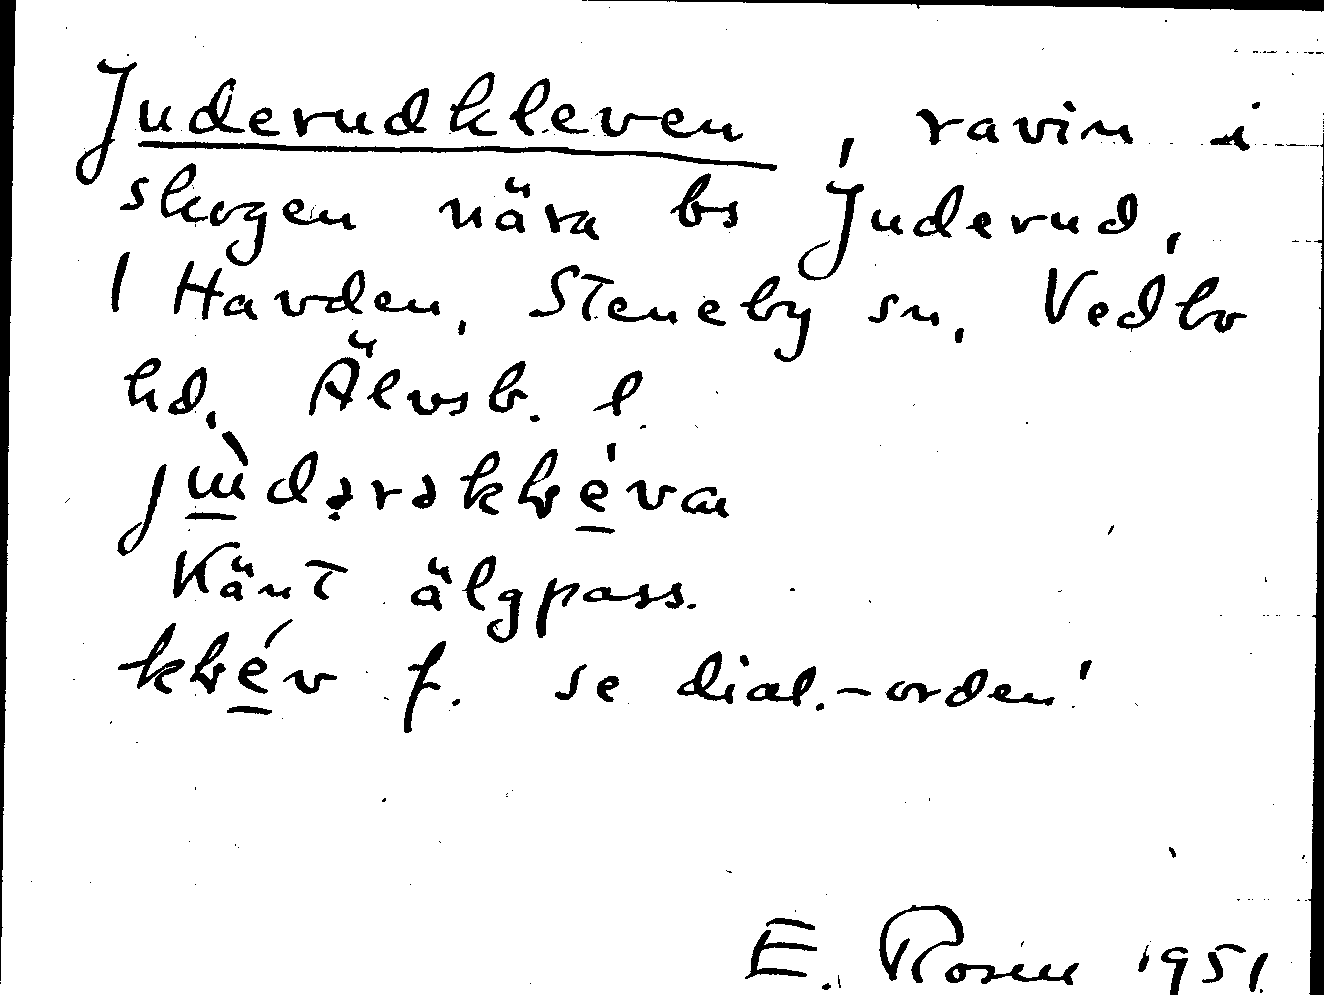 Juderudkleven, ravin i
skogen nära bs Juderud,
1 Havden, Steneby sn, Vedbo
hd, Älvsb. l.
Känt älgpass.
f. se dial.-orden!
E. Rosin 1951